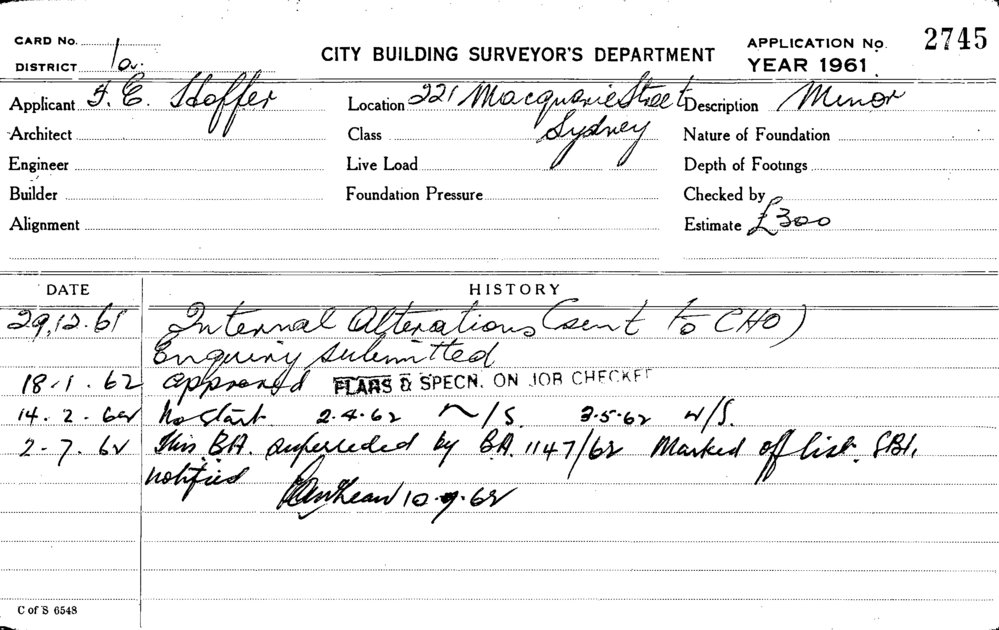 CARD No.
CITY BUILDING SURVEYOR'S DEPARTMENT
APPLICATION No. 2745
DISTRICT 1a.
YEAR 1961
Applicant F. E. Hoffer Location 221 Macquarie Street Description Minor
Sydney
Architect Class Nature of Foundation
Engineer Live Load Depth of Footings
Builder Foundation Pressure Checked by
Alignment Estimate £300
DATE HISTORY
29.12.61 Internal Alterations (sent to CHO)
Enquiry submitted
18.1.62 approved PLANS & SPECN. ON JOB CHECKED
14.2.62 No start 2.4.62 N/S. 3.5.62 N/S.
2.7.62 This BA. superceded by BA. 1147/62 Marked off list. SBI,
notified 10.9.62
C of S 6548